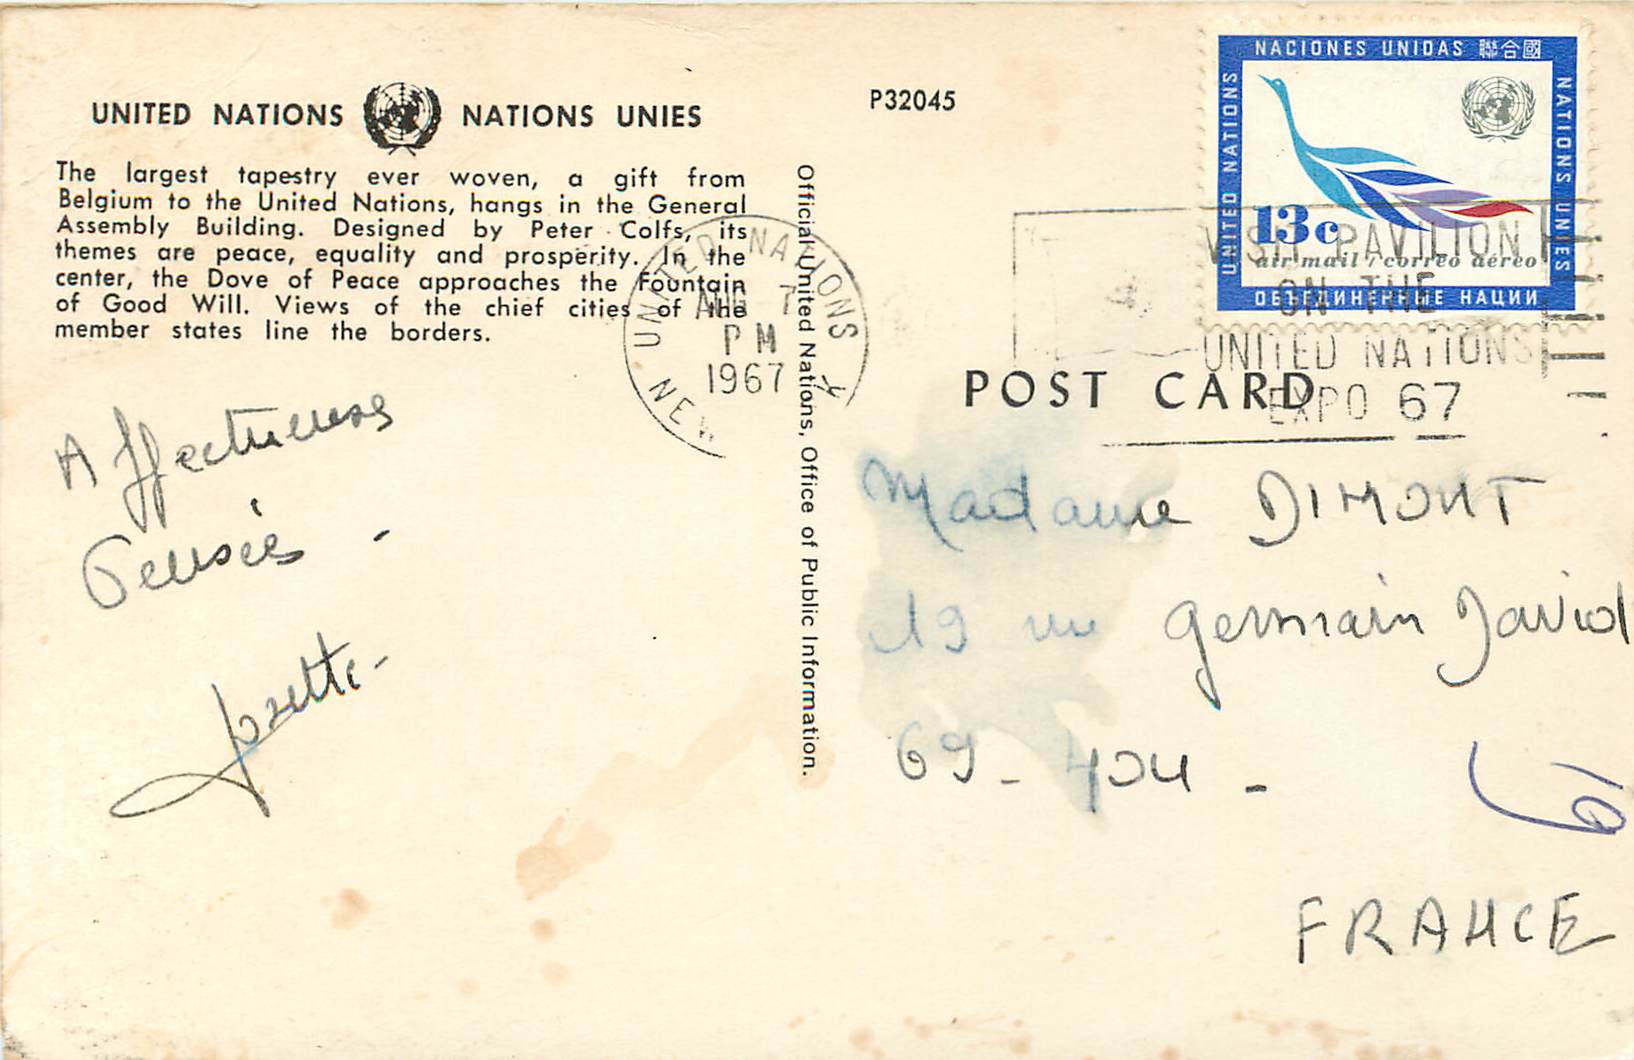 UNITED NATIONS NATIONS UNIES
The largest tapestry ever woven, a gift from
Belgium to the United Nations, hangs in the General
Assembly Building. Designed by Peter Colfs, its
themes are peace, equality and prosperity. In the
center, the Dove of Peace approaches the Fountain
of Good Will. Views of the chief cities of the
member states line the borders.
Affectueuses
Pensées -
Josette -
Official United Nations, Office of Public Information.
P32045
UNITED NATIONS
AUG 7
PM
1967
NEW
NACIONES UNIDAS 聯合國
UNITED NATIONS
NATIONS UNIES
13c
air mail / correo aéreo
ОБЪЕДИНЕННЫЕ НАЦИИ
VISIT PAVILION
ON THE
UNITED NATIONS
EXPO 67
POST CARD
Madame DIMONT
19 rue Germain David
69 -
FRANCE